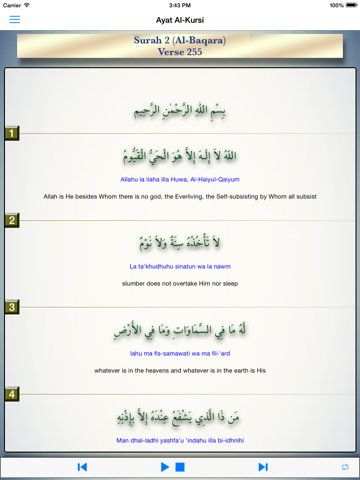 Carrier 3:43 PM 100%
Ayat Al-Kursi
Surah 2 (Al-Baqara)
Verse 255
بِسْمِ اللَّهِ الرَّحْمَٰنِ الرَّحِيمِ
1
اللَّهُ لاَ إِلَهَ إِلاَّ هُوَ الْحَيُّ الْقَيُّومُ
Allahu la ilaha illa Huwa, Al-Haiyul-Qaiyum
Allah is He besides Whom there is no god, the Everliving, the Self-subsisting by Whom all subsist
2
لاَ تَأْخُذُهُ سِنَةٌ وَلاَ نَوْمٌ
La ta'khudhuhu sinatun wa la nawm
slumber does not overtake Him nor sleep
3
لَّهُ مَا فِي السَّمَاوَاتِ وَمَا فِي الأَرْضِ
lahu ma fis-samawati wa ma fil-'ard
whatever is in the heavens and whatever is in the earth is His
4
مَن ذَا الَّذِي يَشْفَعُ عِنْدَهُ إِلاَّ بِإِذْنِهِ
Man dhal-ladhi yashfa'u 'indahu illa bi-idhnihi